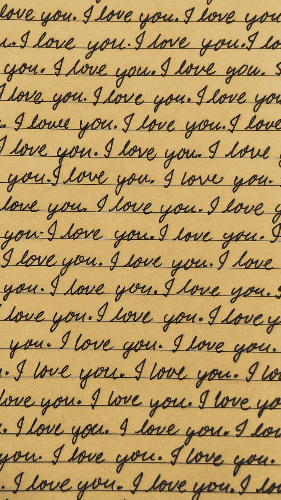 love you. I love you. I love you
u. I love you. I love you. I lo
you. I love you. I love you. I
I love you. I love you. I love you
. I love you. I love you. I love
I love you. I love you. I love
you. I love you. I love you.
love you. I love you. I love y
you. I love you. I love you. I
I love you. I love you. I love
you. I love you. I love you.
love you. I love you. I love y
you. I love you. I love you.
. I love you. I love you. I lo
love you. I love you. I love yo
. I love you. I love you. I lov
you. I love you. I love you.
. I love you. I love you. I lo